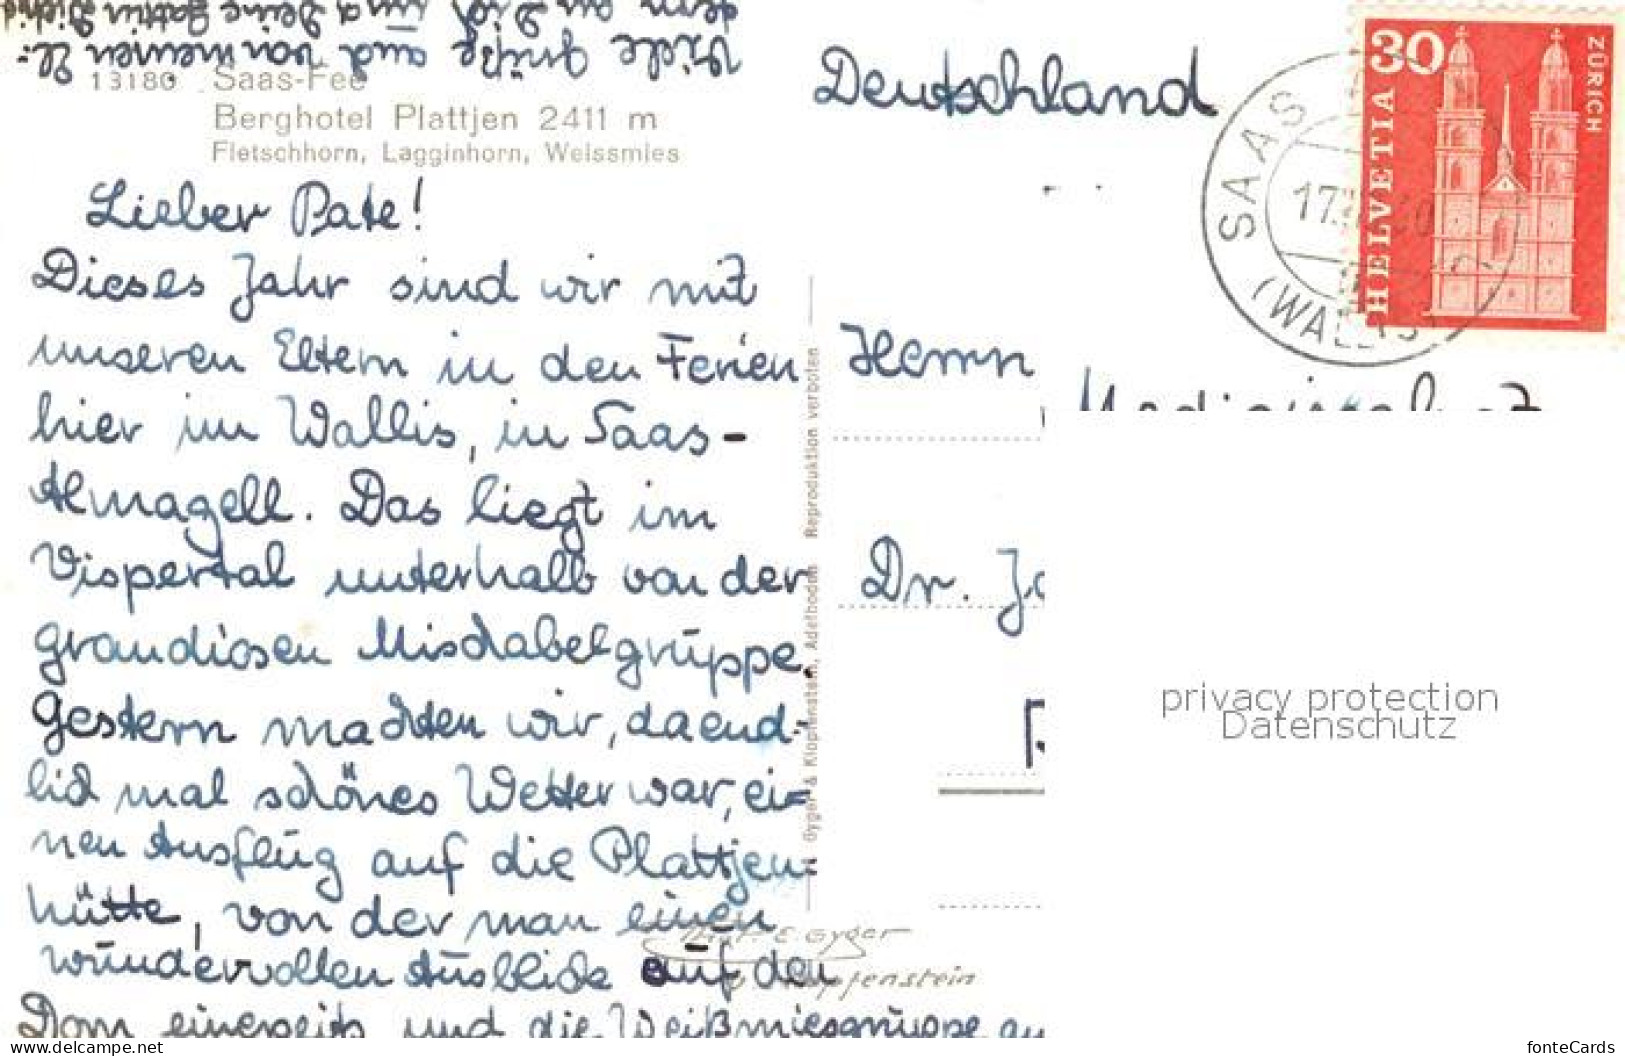 Viele Grüße auch von meinen El-
dern an Dich und Deine Gattin
13180 Saas-Fee
Berghotel Plattjen 2411 m
Fletschhorn, Lagginhorn, Weissmies
Lieber Pate!
Dieses Jahr sind wir mit
unseren Eltern in den Ferien
hier im Wallis, in Saas-
Almagell. Das liegt im
Vispertal unterhalb von der
grandiosen Mischabelgruppe.
Gestern machten wir, da end-
lich mal schönes Wetter war, ei=
nen Ausflug auf die Plattjen=
hütte, von der man einen
wundervollen Ausblick auf den
Dom einerseits und die Weißmiesgruppe
Gyger & Klopfenstein, Adelboden Reproduktion verboten
E. Gyger
Deutschland
Herrn
Dr.
30
HELVETIA
ZÜRICH
SAAS
17.
(WALLIS)
privacy protection
Datenschutz
www.delcampe.net
fonteCards